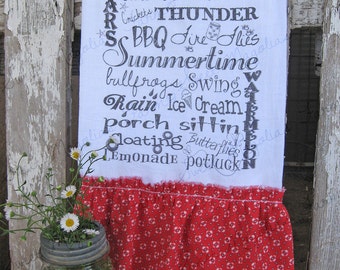 STARS
Crickets THUNDER
BBQ Fire Flies
Summertime
bullfrogs Swing
Rain Ice Cream
porch sittin
floating Butterflies
LEMONADE potluck
WATERMELON